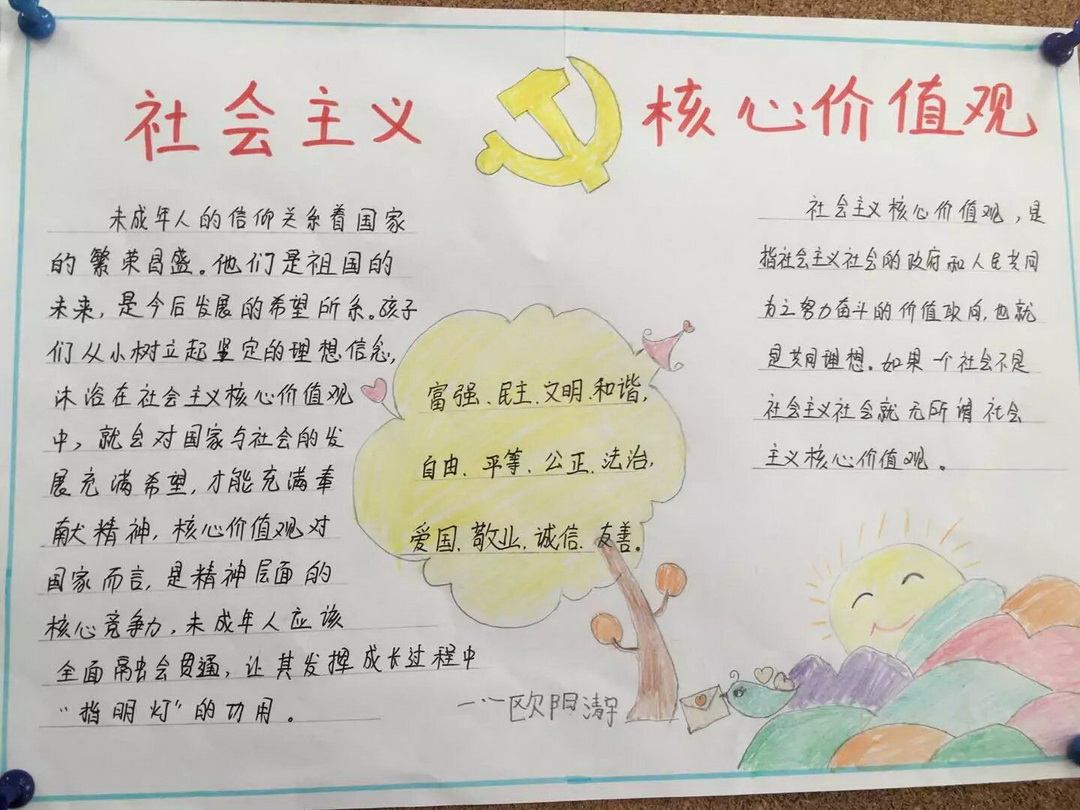 社会主义 核心价值观
未成年人的信仰关系着国家
的繁荣昌盛。他们是祖国的
未来，是今后发展的希望所系。孩子
们从小树立起坚定的理想信念，
沐浴在社会主义核心价值观
中，就会对国家与社会的发
展充满希望，才能充满奉
献精神，核心价值观对
国家而言，是精神层面的
核心竞争力，未成年人应该
全面融会贯通，让其发挥成长过程中
“指明灯”的功用。
富强、民主、文明、和谐，
自由、平等、公正、法治，
爱国、敬业、诚信、友善。
社会主义核心价值观，是
指社会主义社会的政府和人民共同
为之努力奋斗的价值取向，也就
是共同理想。如果一个社会不是
社会主义社会就无所谓社会
主义核心价值观。
——欧阳清宇